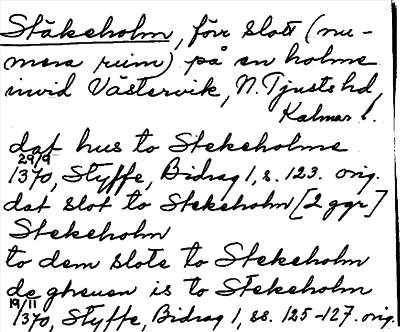 Stäkeholm, förr slott (nu-
mera ruin) på en holme
invid Västervik, N. Tjusts hd,
Kalmar l.
dat hus to Stekeholme
29/9 1370, Styffe, Bidrag 1, s. 123. orig.
dat slot to Stekeholm [2 ggr]
Stekeholm
to dem slote to Stekeholm
de gheuen is to Stekeholm
19/11 1370, Styffe, Bidrag 1, ss. 125-127. orig.